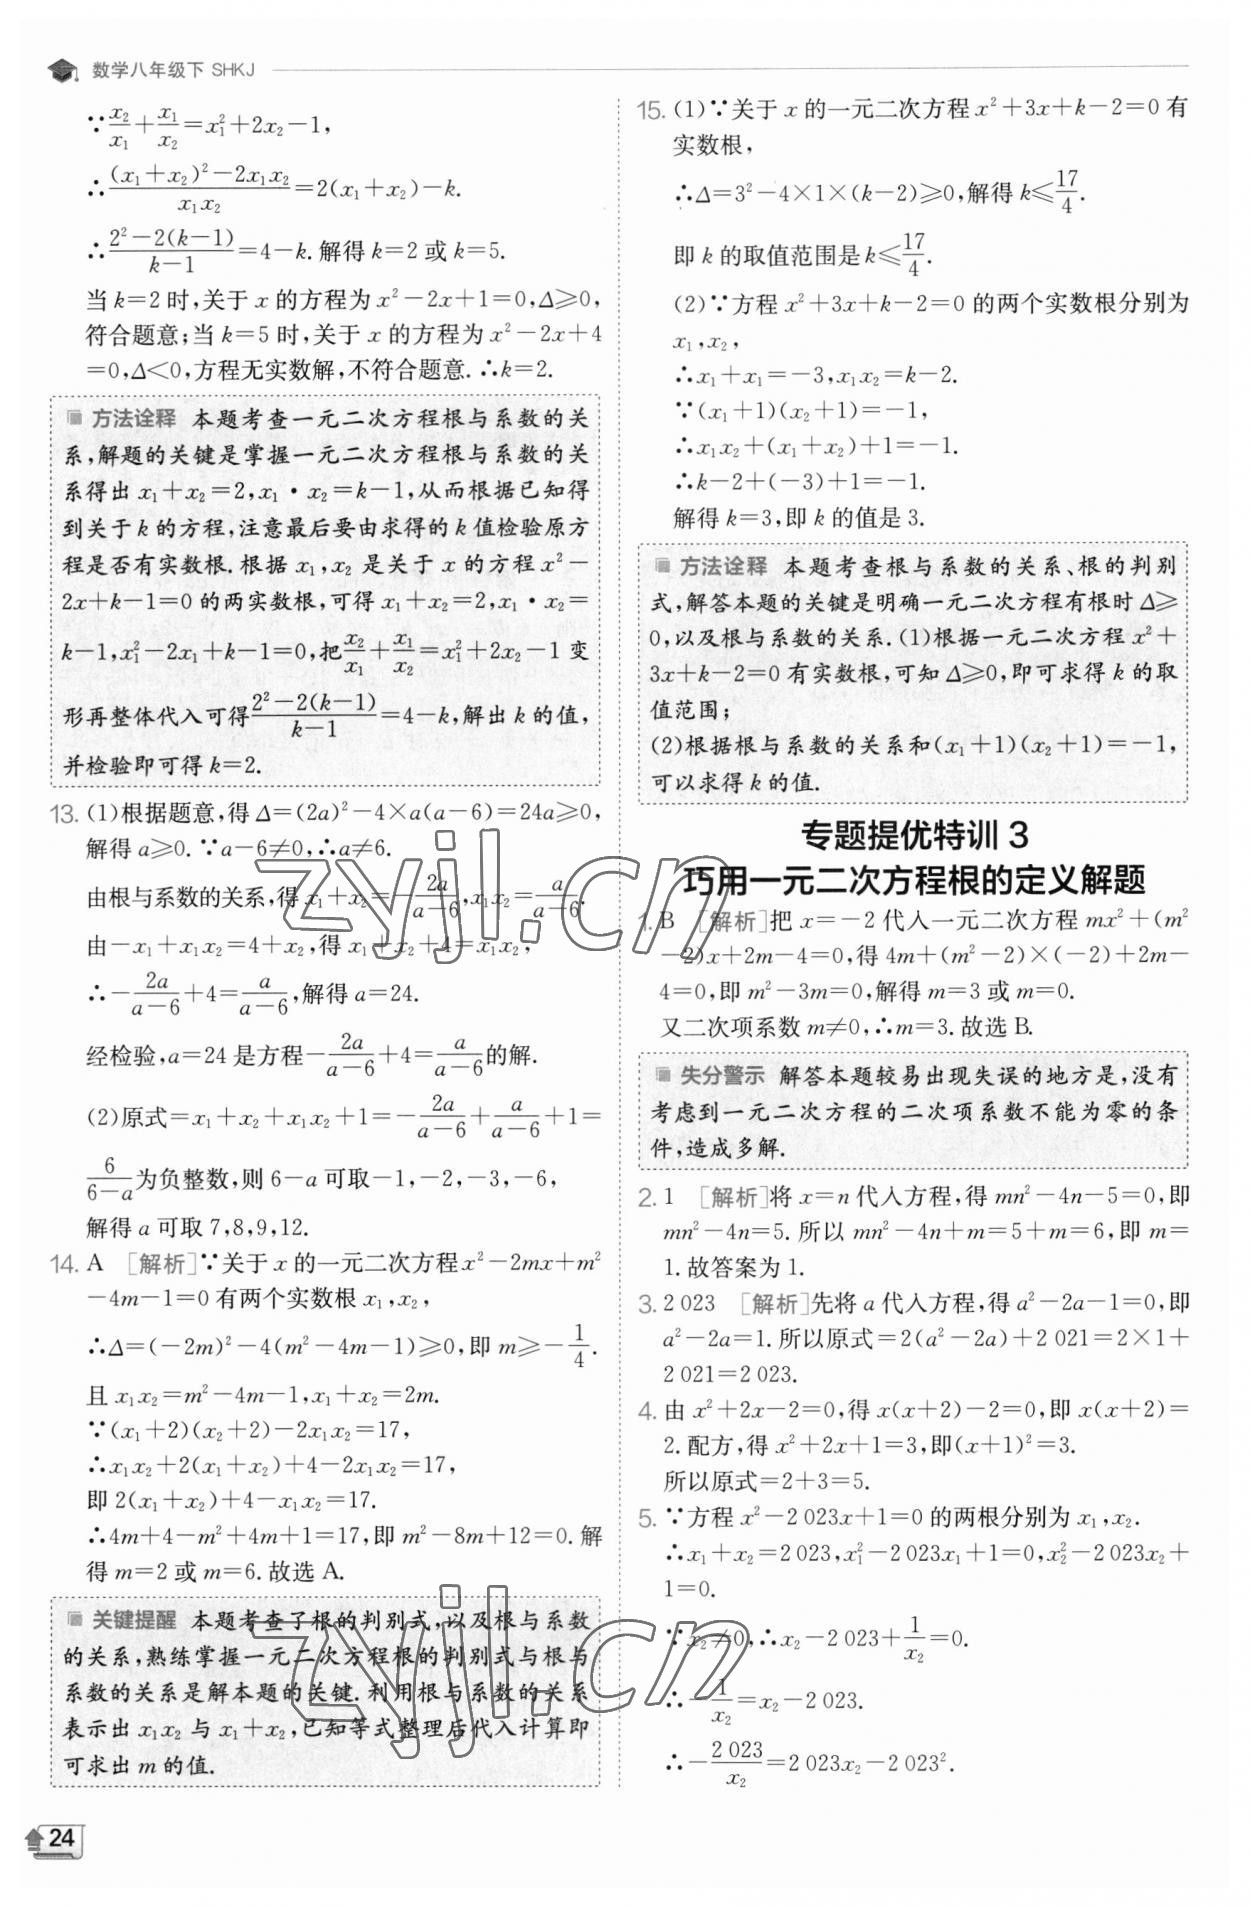 数学八年级下 SHKJ
∵x₂/x₁+x₁/x₂=x₁²+2x₂−1,
∴((x₁+x₂)²−2x₁x₂)/(x₁x₂)=2(x₁+x₂)−k.
∴(2²−2(k−1))/(k−1)=4−k.解得k=2或k=5.
当k=2时,关于x的方程为x²−2x+1=0,Δ≥0,
符合题意;当k=5时,关于x的方程为x²−2x+4
=0,Δ<0,方程无实数解,不符合题意.∴k=2.
方法诠释 本题考查一元二次方程根与系数的关
系,解题的关键是掌握一元二次方程根与系数的关
系得出x₁+x₂=2,x₁·x₂=k−1,从而根据已知得
到关于k的方程,注意最后要由求得的k值检验原方
程是否有实数根.根据x₁,x₂是关于x的方程x²−
2x+k−1=0的两实数根,可得x₁+x₂=2,x₁·x₂=
k−1,x₁²−2x₁+k−1=0,把x₂/x₁+x₁/x₂=x₁²+2x₂−1变
形再整体代入可得(2²−2(k−1))/(k−1)=4−k,解出k的值,
并检验即可得k=2.
13. (1)根据题意,得Δ=(2a)²−4×a(a−6)=24a≥0,
解得a≥0.∵a−6≠0,∴a≠6.
由根与系数的关系,得x₁+x₂=−2a/(a−6),x₁x₂=a/(a−6).
由−x₁+x₁x₂=4+x₂,得x₁+x₂+4=x₁x₂,
∴−2a/(a−6)+4=a/(a−6),解得a=24.
经检验,a=24是方程−2a/(a−6)+4=a/(a−6)的解.
(2)原式=x₁+x₂+x₁x₂+1=−2a/(a−6)+a/(a−6)+1=
6/(6−a)为负整数,则6−a可取−1,−2,−3,−6,
解得a可取7,8,9,12.
14. A [解析]∵关于x的一元二次方程x²−2mx+m²
−4m−1=0有两个实数根x₁,x₂,
∴Δ=(−2m)²−4(m²−4m−1)≥0,即m≥−1/4.
且x₁x₂=m²−4m−1,x₁+x₂=2m.
∵(x₁+2)(x₂+2)−2x₁x₂=17,
∴x₁x₂+2(x₁+x₂)+4−2x₁x₂=17,
即2(x₁+x₂)+4−x₁x₂=17.
∴4m+4−m²+4m+1=17,即m²−8m+12=0.解
得m=2或m=6.故选A.
关键提醒 本题考查了根的判别式,以及根与系数
的关系,熟练掌握一元二次方程根的判别式与根与
系数的关系是解本题的关键.利用根与系数的关系
表示出x₁x₂与x₁+x₂,已知等式整理后代入计算即
可求出m的值.
24
15. (1)∵关于x的一元二次方程x²+3x+k−2=0有
实数根,
∴Δ=3²−4×1×(k−2)≥0,解得k≤17/4.
即k的取值范围是k≤17/4.
(2)∵方程x²+3x+k−2=0的两个实数根分别为
x₁,x₂,
∴x₁+x₁=−3,x₁x₂=k−2.
∵(x₁+1)(x₂+1)=−1,
∴x₁x₂+(x₁+x₂)+1=−1.
∴k−2+(−3)+1=−1.
解得k=3,即k的值是3.
方法诠释 本题考查根与系数的关系、根的判别
式,解答本题的关键是明确一元二次方程有根时Δ≥
0,以及根与系数的关系.(1)根据一元二次方程x²+
3x+k−2=0有实数根,可知Δ≥0,即可求得k的取
值范围;
(2)根据根与系数的关系和(x₁+1)(x₂+1)=−1,
可以求得k的值.
专题提优特训3
巧用一元二次方程根的定义解题
1. B [解析]把x=−2代入一元二次方程mx²+(m²
−2)x+2m−4=0,得4m+(m²−2)×(−2)+2m−
4=0,即m²−3m=0,解得m=3或m=0.
又二次项系数m≠0,∴m=3.故选B.
失分警示 解答本题较易出现失误的地方是,没有
考虑到一元二次方程的二次项系数不能为零的条
件,造成多解.
2. 1 [解析]将x=n代入方程,得mn²−4n−5=0,即
mn²−4n=5.所以mn²−4n+m=5+m=6,即m=
1.故答案为1.
3. 2 023 [解析]先将a代入方程,得a²−2a−1=0,即
a²−2a=1.所以原式=2(a²−2a)+2 021=2×1+
2 021=2 023.
4. 由x²+2x−2=0,得x(x+2)−2=0,即x(x+2)=
2.配方,得x²+2x+1=3,即(x+1)²=3.
所以原式=2+3=5.
5. ∵方程x²−2 023x+1=0的两根分别为x₁,x₂.
∴x₁+x₂=2 023,x₁²−2 023x₁+1=0,x₂²−2 023x₂+
1=0.
∵x₂≠0,∴x₂−2 023+1/x₂=0.
∴−1/x₂=x₂−2 023.
∴−2 023/x₂=2 023x₂−2 023².
zyjl.cn
zyjl.cn